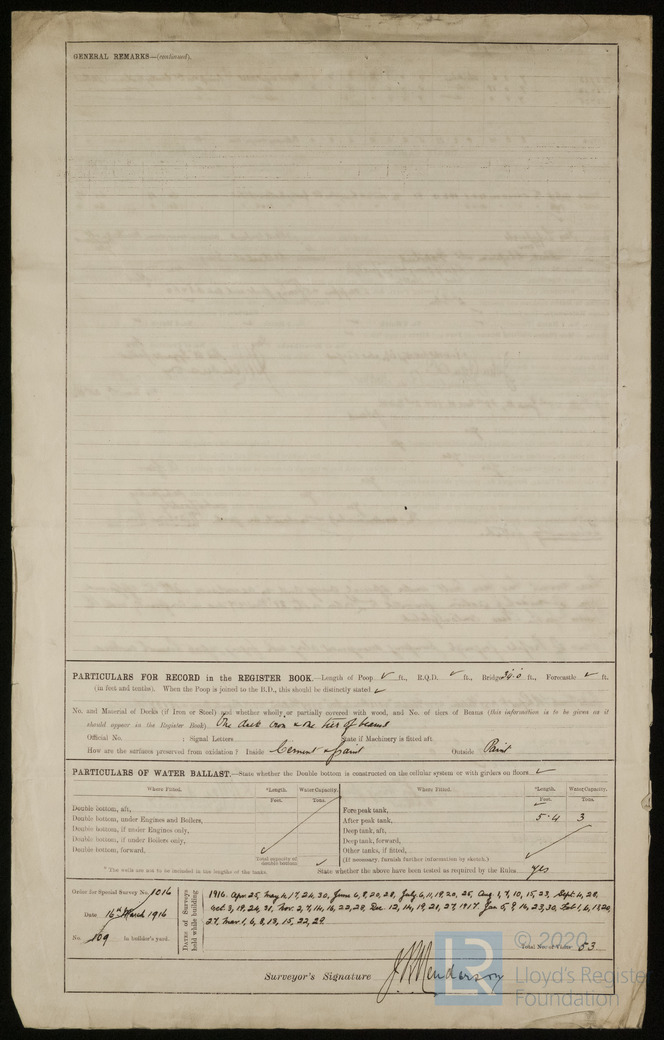 GENERAL REMARKS—(continued).
PARTICULARS FOR RECORD in the REGISTER BOOK.—Length of Poop ✓ ft., R.Q.D. ✓ ft., Bridge 34.0 ft., Forecastle ✓ ft.
(in feet and tenths). When the Poop is joined to the B.D., this should be distinctly stated ✓
No. and Material of Decks (if Iron or Steel) and whether wholly or partially covered with wood, and No. of tiers of Beams (this information is to be given as it
should appear in the Register Book). One deck iron & one tier of beams
Official No. ; Signal Letters State if Machinery is fitted aft
How are the surfaces preserved from oxidation? Inside Cement & paint Outside Paint
PARTICULARS OF WATER BALLAST.—State whether the Double bottom is constructed on the cellular system or with girders on floors ✓
Where Fitted. *Length. Water Capacity. Where Fitted. *Length. Water Capacity.
Feet. Tons. Feet. Tons.
Double bottom, aft, Fore peak tank, ✓
Double bottom, under Engines and Boilers, After peak tank, 5.4 3
Double bottom, if under Engines only, Deep tank, aft,
Double bottom, if under Boilers only, Deep tank, forward,
Double bottom, forward, ✓ Other tanks, if fitted, ✓
Total capacity of double bottom ✓ (If necessary, furnish further information by sketch.)
* The wells are not to be included in the lengths of the tanks. State whether the above have been tested as required by the Rules yes
Order for Special Survey No. 1016
Date 16th March 1916
No. 109 in builder's yard.
Dates of Surveys held while building
1916. Apr. 25, May 4, 17, 24, 30, June 6, 9, 20, 28, July 6, 11, 18, 20, 25, Aug. 1, 7, 10, 15, 23, Sept. 4, 28,
Oct. 3, 18, 24, 31, Nov. 2, 7, 14, 16, 22, 28, Dec. 12, 14, 19, 21, 27, 1917 Jan. 5, 9, 16, 23, 30, Feb. 1, 6, 13, 20,
27, Mar. 1, 6, 8, 13, 15, 22, 29.
Total No. of Visits 53
Surveyor's Signature
© 2020
LR
Lloyd's Register
Foundation